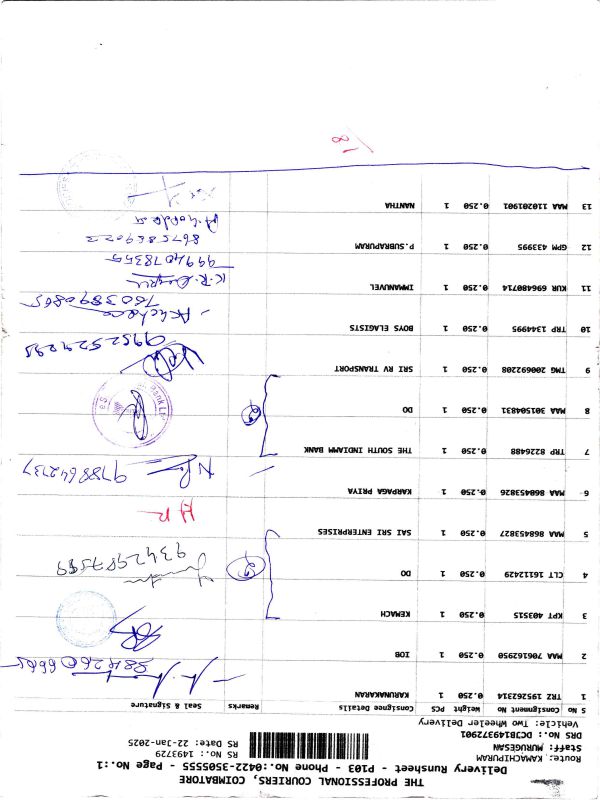 THE PROFESSIONAL COURIERS, COIMBATORE
Delivery Runsheet - P103 - Phone No.:0422-3505555 - Page No.:1
Route: KAMACHIPURAM
Staff: MURUGESAN
DRS No.: DCTB149372901
Vehicle: Two Wheeler Delivery
RS No.: 1493729
RS Date: 22-Jan-2025
S No Consignment No Weight PCS Consignee Details Remarks Seal & Signature
1 TRZ 195262314 0.250 1 KARUNAKARAN
2 MAA 706162950 0.250 1 IOB
3 KPT 403515 0.250 1 KEMACH
4 CLT 16112429 0.250 1 DO 9342987589
5 MAA 868453827 0.250 1 SAI SRI ENTERPRISES
6 MAA 868453826 0.250 1 KARPAGA PRIYA 9788642737
7 TRP 8226488 0.250 1 THE SOUTH INDIAMN BANK
8 MAA 301504831 0.250 1 DO
9 TMG 200692208 0.250 1 SRI RV TRANSPORT
9952529295
10 TRP 1344995 0.250 1 BOYS ELAGISTS
7603890865
11 KUR 696480714 0.250 1 IMMANUVEL K.R.
9994078355
12 GPM 433995 0.250 1 P.SUBRAPURAM 8675869022
13 MAA 110201901 0.250 1 NANTHA